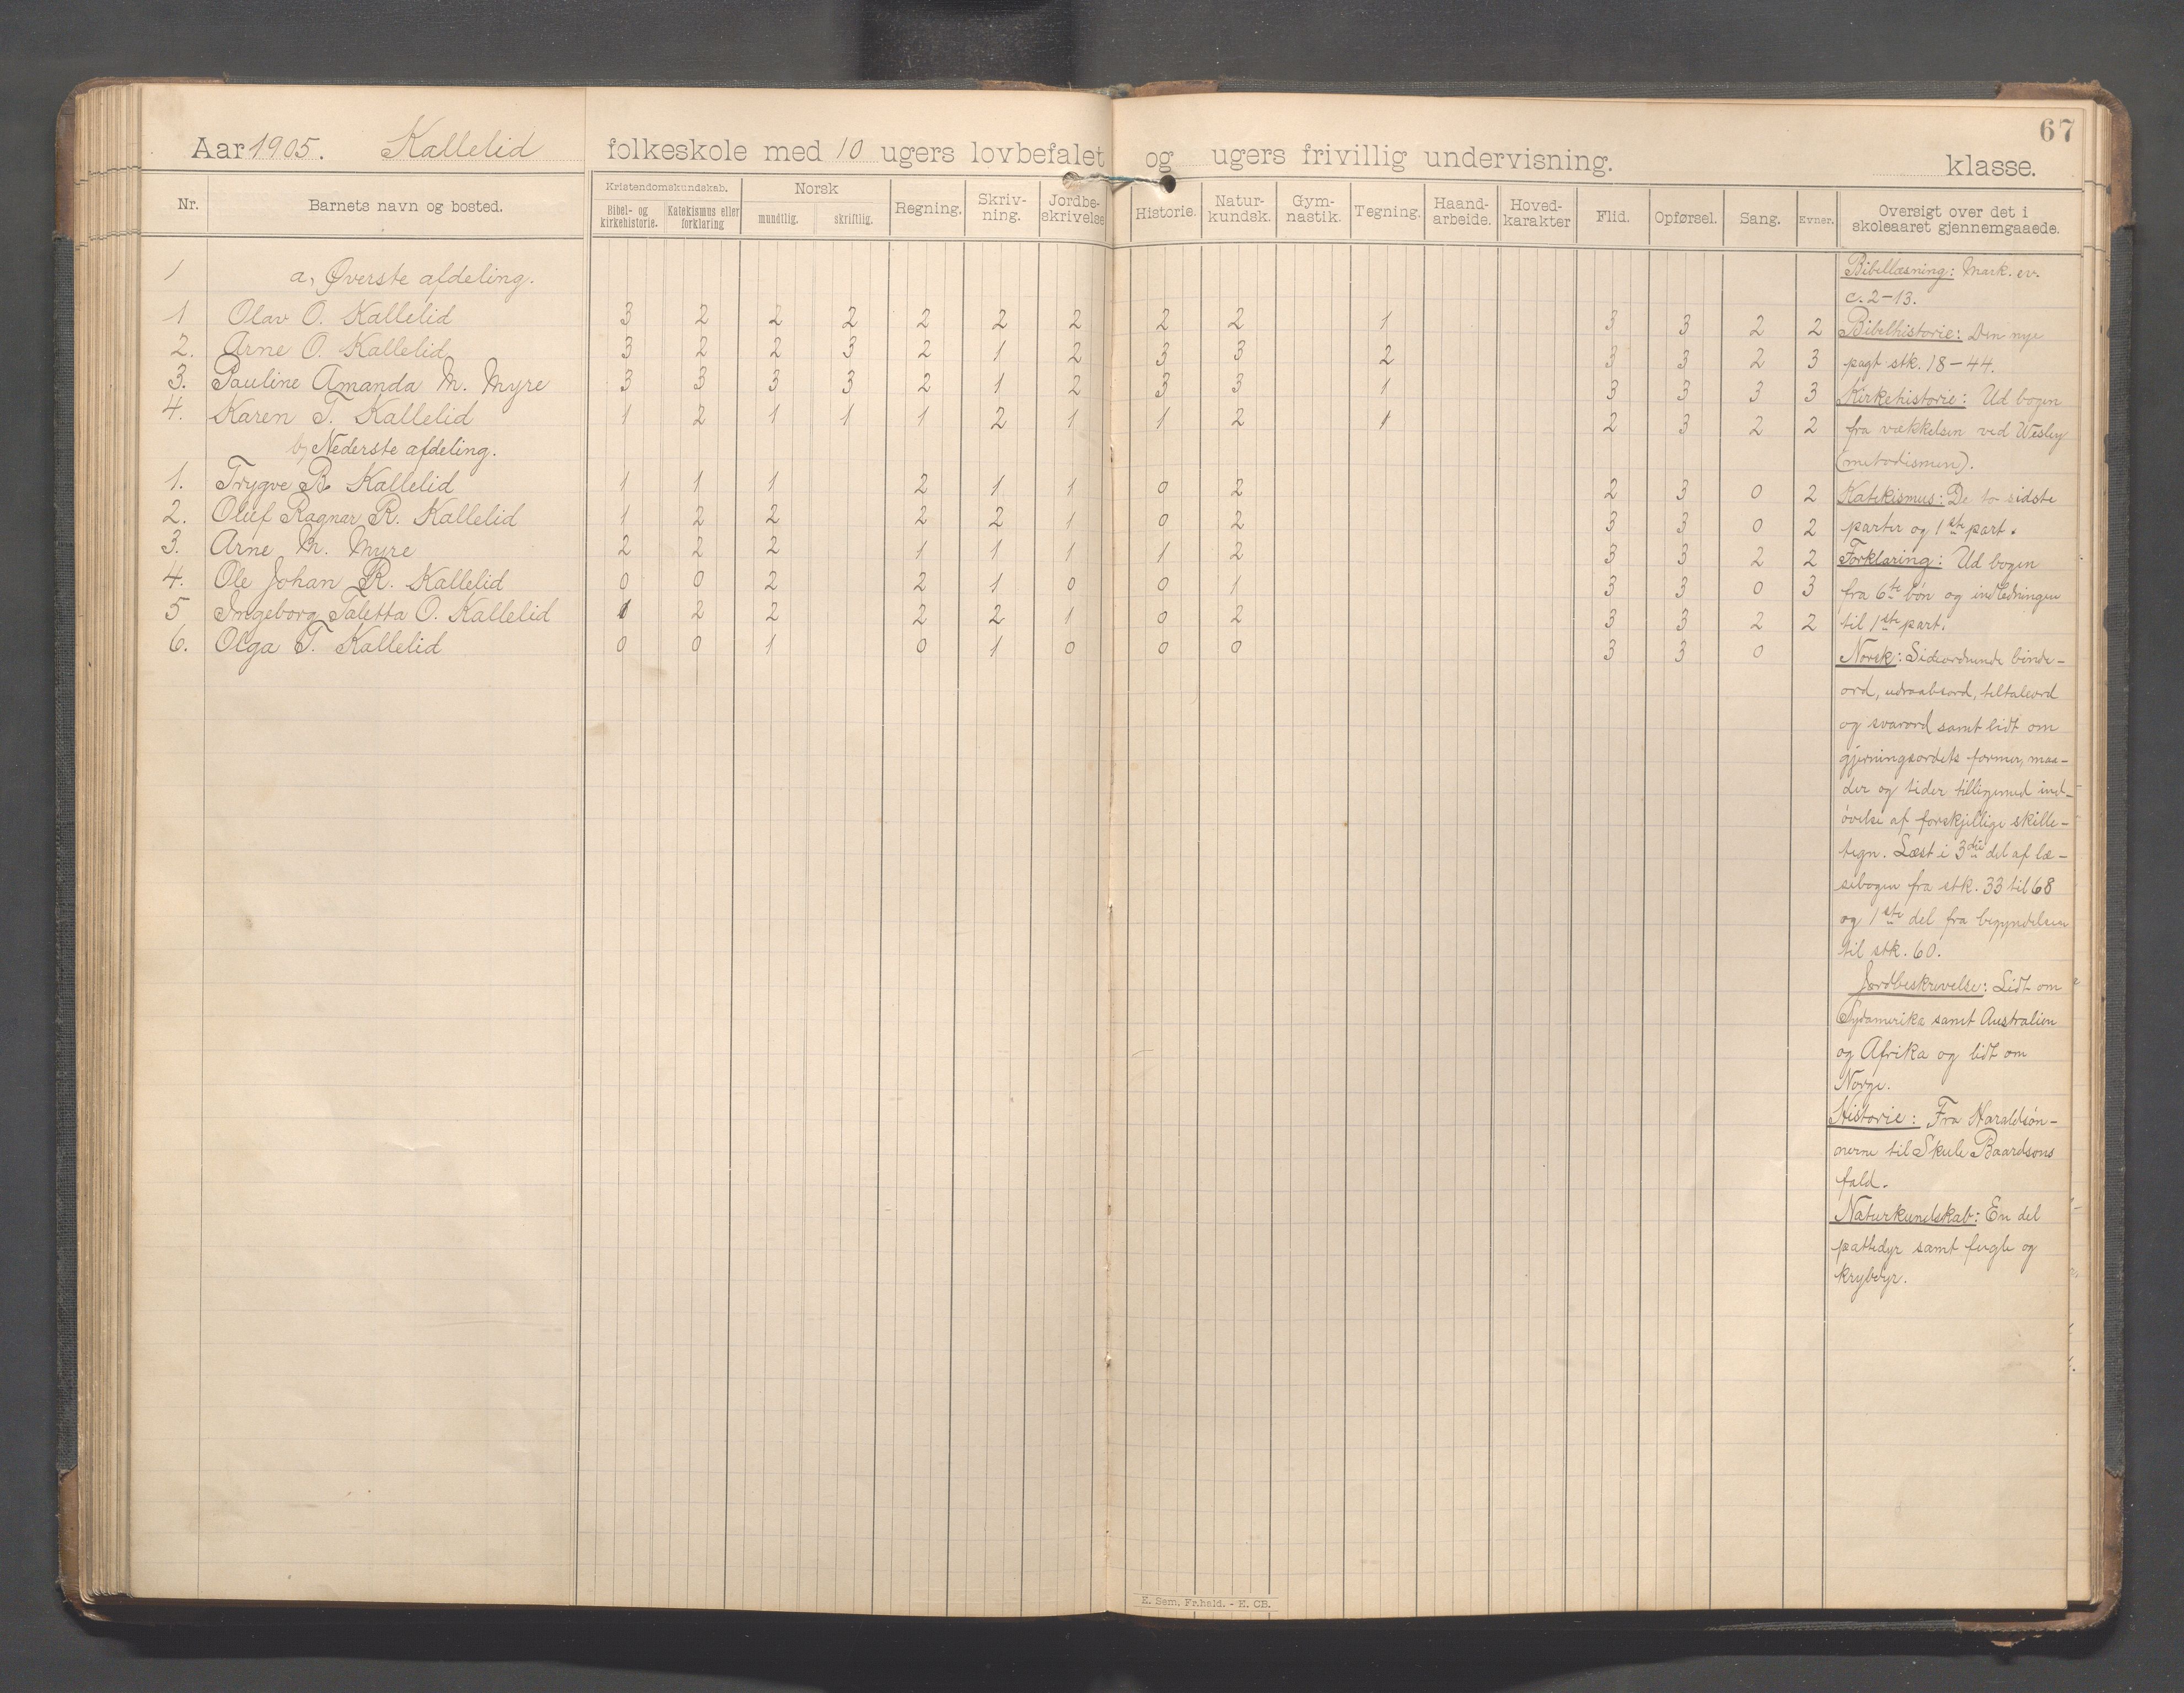 67
Aar 1905. Kallelid folkeskole med 10 ugers lovbefalet og ugers frivillig undervisning. klasse.
Nr. Barnets navn og bosted. Kristendomskundskab. Bibel- og kirkehistorie. Katekismus eller forklaring Norsk mundtlig. skriftlig. Regning. Skriv-ning. Jordbe-skrivelse Historie. Natur-kundsk. Gym-nastik. Tegning. Haand-arbeide. Hoved-karakter Flid. Opførsel. Sang. Evner. Oversigt over det i skoleaaret gjennemgaaede.
1 a, Øverste afdeling.
1 Olav O. Kallelid 3 2 2 2 2 2 2 2 2 1 3 3 2 2
2. Arne O. Kallelid 3 2 2 3 2 1 2 3 3 2 3 3 2 3
3. Pauline Amanda M. Myre 3 3 3 3 2 1 2 3 3 1 3 3 3 3
4. Karen T. Kallelid 1 2 1 1 1 2 1 1 2 1 2 3 2 2
b, Nederste afdeling.
1. Trygve B. Kallelid 1 1 1 2 1 1 0 2 2 3 0 2
2. Oluf Ragnar R. Kallelid 1 2 2 2 2 1 0 2 3 3 0 2
3. Arne M. Myre 2 2 2 1 1 1 1 2 3 3 2 2
4. Ole Johan R. Kallelid 0 0 2 2 1 0 0 1 3 3 0 3
5 Ingeborg Taletta O. Kallelid 1 2 2 2 2 1 0 2 3 3 2 2
6. Olga T. Kallelid 0 0 1 0 1 0 0 0 3 3 0
Bibellæsning: Mark. ev.
c. 2-13.
Bibelhistorie: Den nye
pagt stk. 18-44.
Kirkehistorie: Ud bogen
fra vækkelsen ved Wesley
(metodismen).
Katekismus: De to sidste
parter og 1ste part.
Forklaring: Ud bogen
fra 6te bøn og indledningen
til 1ste part.
Norsk: Sideordnende binde-
ord, udraabsord, tiltaleord
og svarord samt lidt om
gjerningsordets former, maa-
der og tider tilligemed ind-
øvelse af forskjellige skille-
tegn. Læst i 3die del af læ-
sebogen fra stk. 33 til 68
og 1ste del fra begyndelsen
til stk. 60.
Jordbeskrivelse: Lidt om
Sydamerika samt Australien
og Afrika og lidt om
Norge.
Historie: Fra Haraldsøn-
nerne til Skule Baardsons
fald.
Naturkundskab: En del
pattedyr samt fugle og
krybdyr.
E. Sem. Fr.hald. - E. CB.